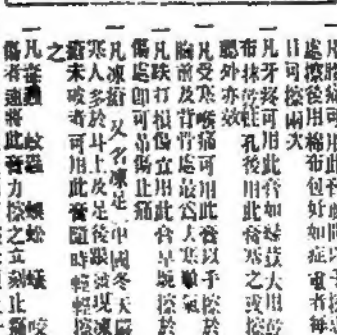 一凡腰痛可用此膏
處擦後用棉布包好如症重者每
日可擦兩次
一凡牙疼可用此膏如蛀
布抹乾蛀孔後用此膏塞之或擦
腮外亦效
一凡受寒喉痛可用此膏以手擦於
胸前及背脊處
一凡跌打損傷宜用此膏早晚擦於
傷處即可弔傷止痛
一凡凍瘡又名凍足中國冬天嚴
寒人多於耳上及足後跟或見凍
瘡未破者可用此膏隨時輕輕擦
之
一凡 蜈蚣 蟻 咬
傷者速將此膏力擦之立刻止